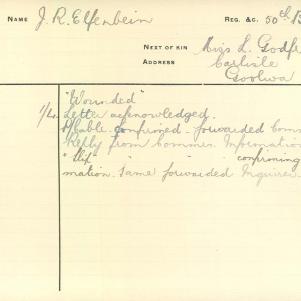 NAME J. R. Elfenbein REG. &C. 50th B
NEXT OF KIN Miss L. Godf
ADDRESS Carlisle
Goolwa
"Wounded"
Letter acknowledged.
Cable confirmed. forwarded Com
Reply from Commn. Information
" " " confirming
mation. Same forwarded Inquirer.